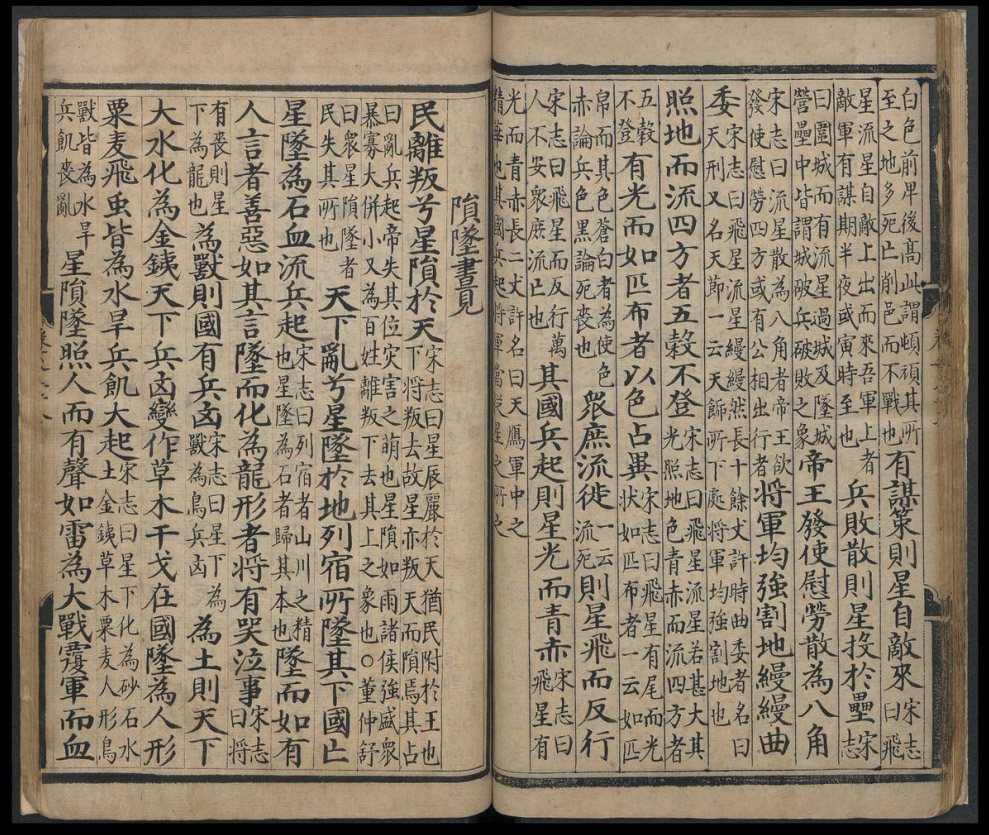 白色前卑後高此謂頓頑其所至之地多死亡削邑而不戰也有謀策則星自敵來宋志曰飛
星流星自敵上出而來吾軍上者敵軍有謀期半夜或寅時至也兵敗散則星投於壘宋志
曰圍城而有流星過城及墜城營壘中皆謂城破兵破敗之象帝王發使慰勞散為八角
宋志曰流星散為八角者帝王欲發使慰勞四方或有公相出行者將軍均強割地縵縵曲
委宋志曰飛星流星縵縵然長十餘丈許時曲委者名曰天刑又名天節一云天飾所下處將軍均強割地也
照地而流四方者五穀不登宋志曰飛星流之星若甚大其光照地色青赤而流四方者
五穀不登有光而如匹布者以色占異宋志曰飛星有尾而光狀如匹布者一云如匹
帛而其色蒼白者為使色赤論兵色黑論死喪也衆庶流徙一云流死則星飛而反行
宋志曰飛星而反行萬人不安衆庶流亡也其國兵起則星光而青赤宋志曰飛星有
光而青赤長二丈許名曰天鴈軍中之精華也其國兵起將軍當從星之所之
隕墜晝見
民離叛兮星隕於天宋志曰星辰麗於天猶民附於王也下將叛去故星亦叛天而隕焉其占
曰亂兵起帝失其位灾害之萌也星隕如雨諸侯強盛衆暴寡大併小又為百姓離叛下去其上之象也○董仲舒
曰衆星隕墜者民失其所也天下亂兮星墜於地列宿所墜其下國亡
星墜為石血流兵起宋志曰列宿者山川之精也星墜為石者歸其本也墜而如有
人言者善惡如其言墜而化為龍形者將有哭泣事宋志曰將
有喪則星下為龍也為獸則國有兵凶宋志曰星下為獸為鳥兵凶為土則天下
大水化為金鉄天下兵凶變作草木干戈在國墜為人形
粟麦飛虫皆為水旱兵飢大起宋志曰星下化為砂石水土金鉄草木粟麦人形鳥
獸皆為水旱兵飢喪亂星隕墜照人而有聲如雷為大戰覆軍而血